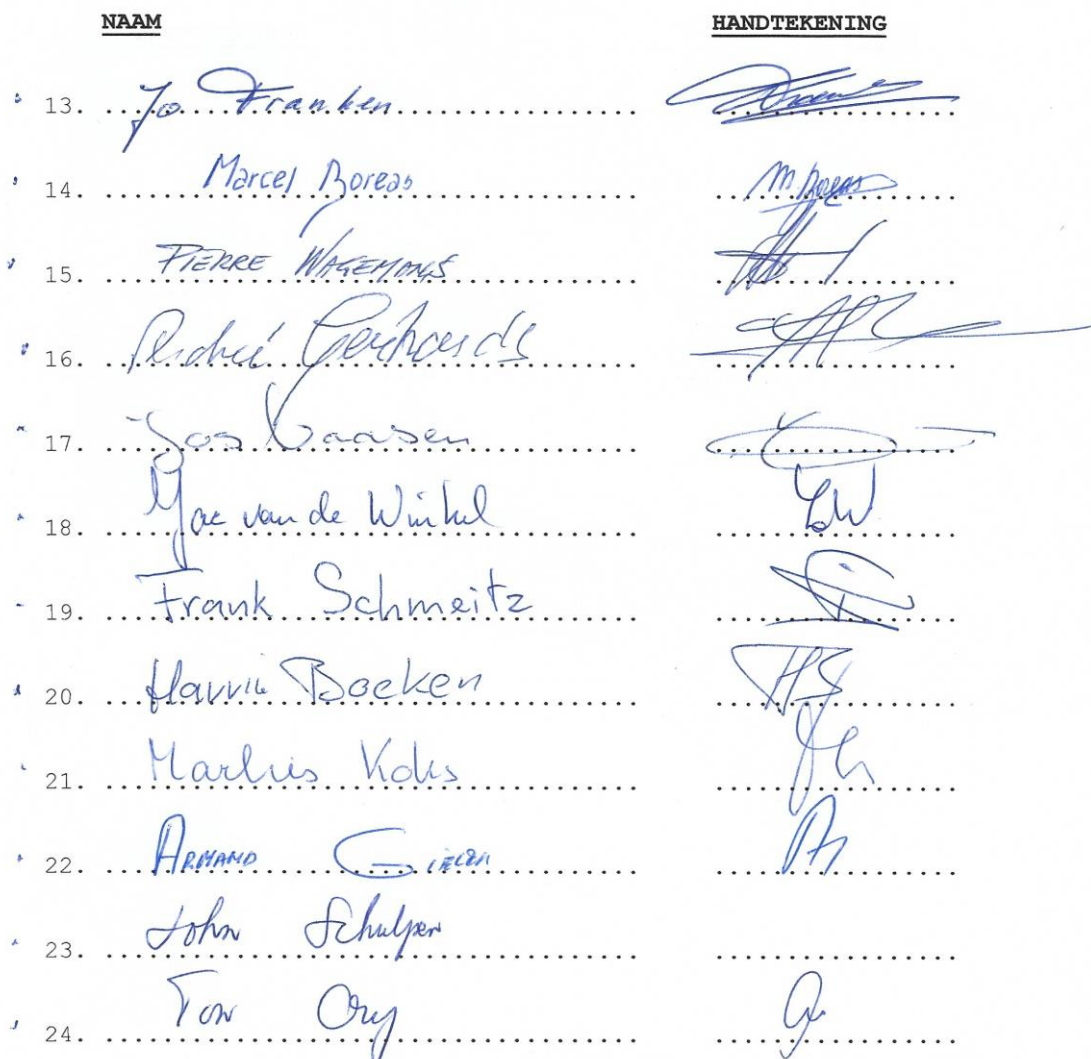 NAAM HANDTEKENING
13. Jo Franken
14. Marcel Boreas M. Boreas
15. PIERRE WAGEMANS
16. André Gerhards
17. Jos Vaasen
18. Jac van de Winkel
19. Frank Schmeitz
20. Harrie Boeken
21. Koks
22. ARMAND GIELEN
23. John Schulpen
24. Ton